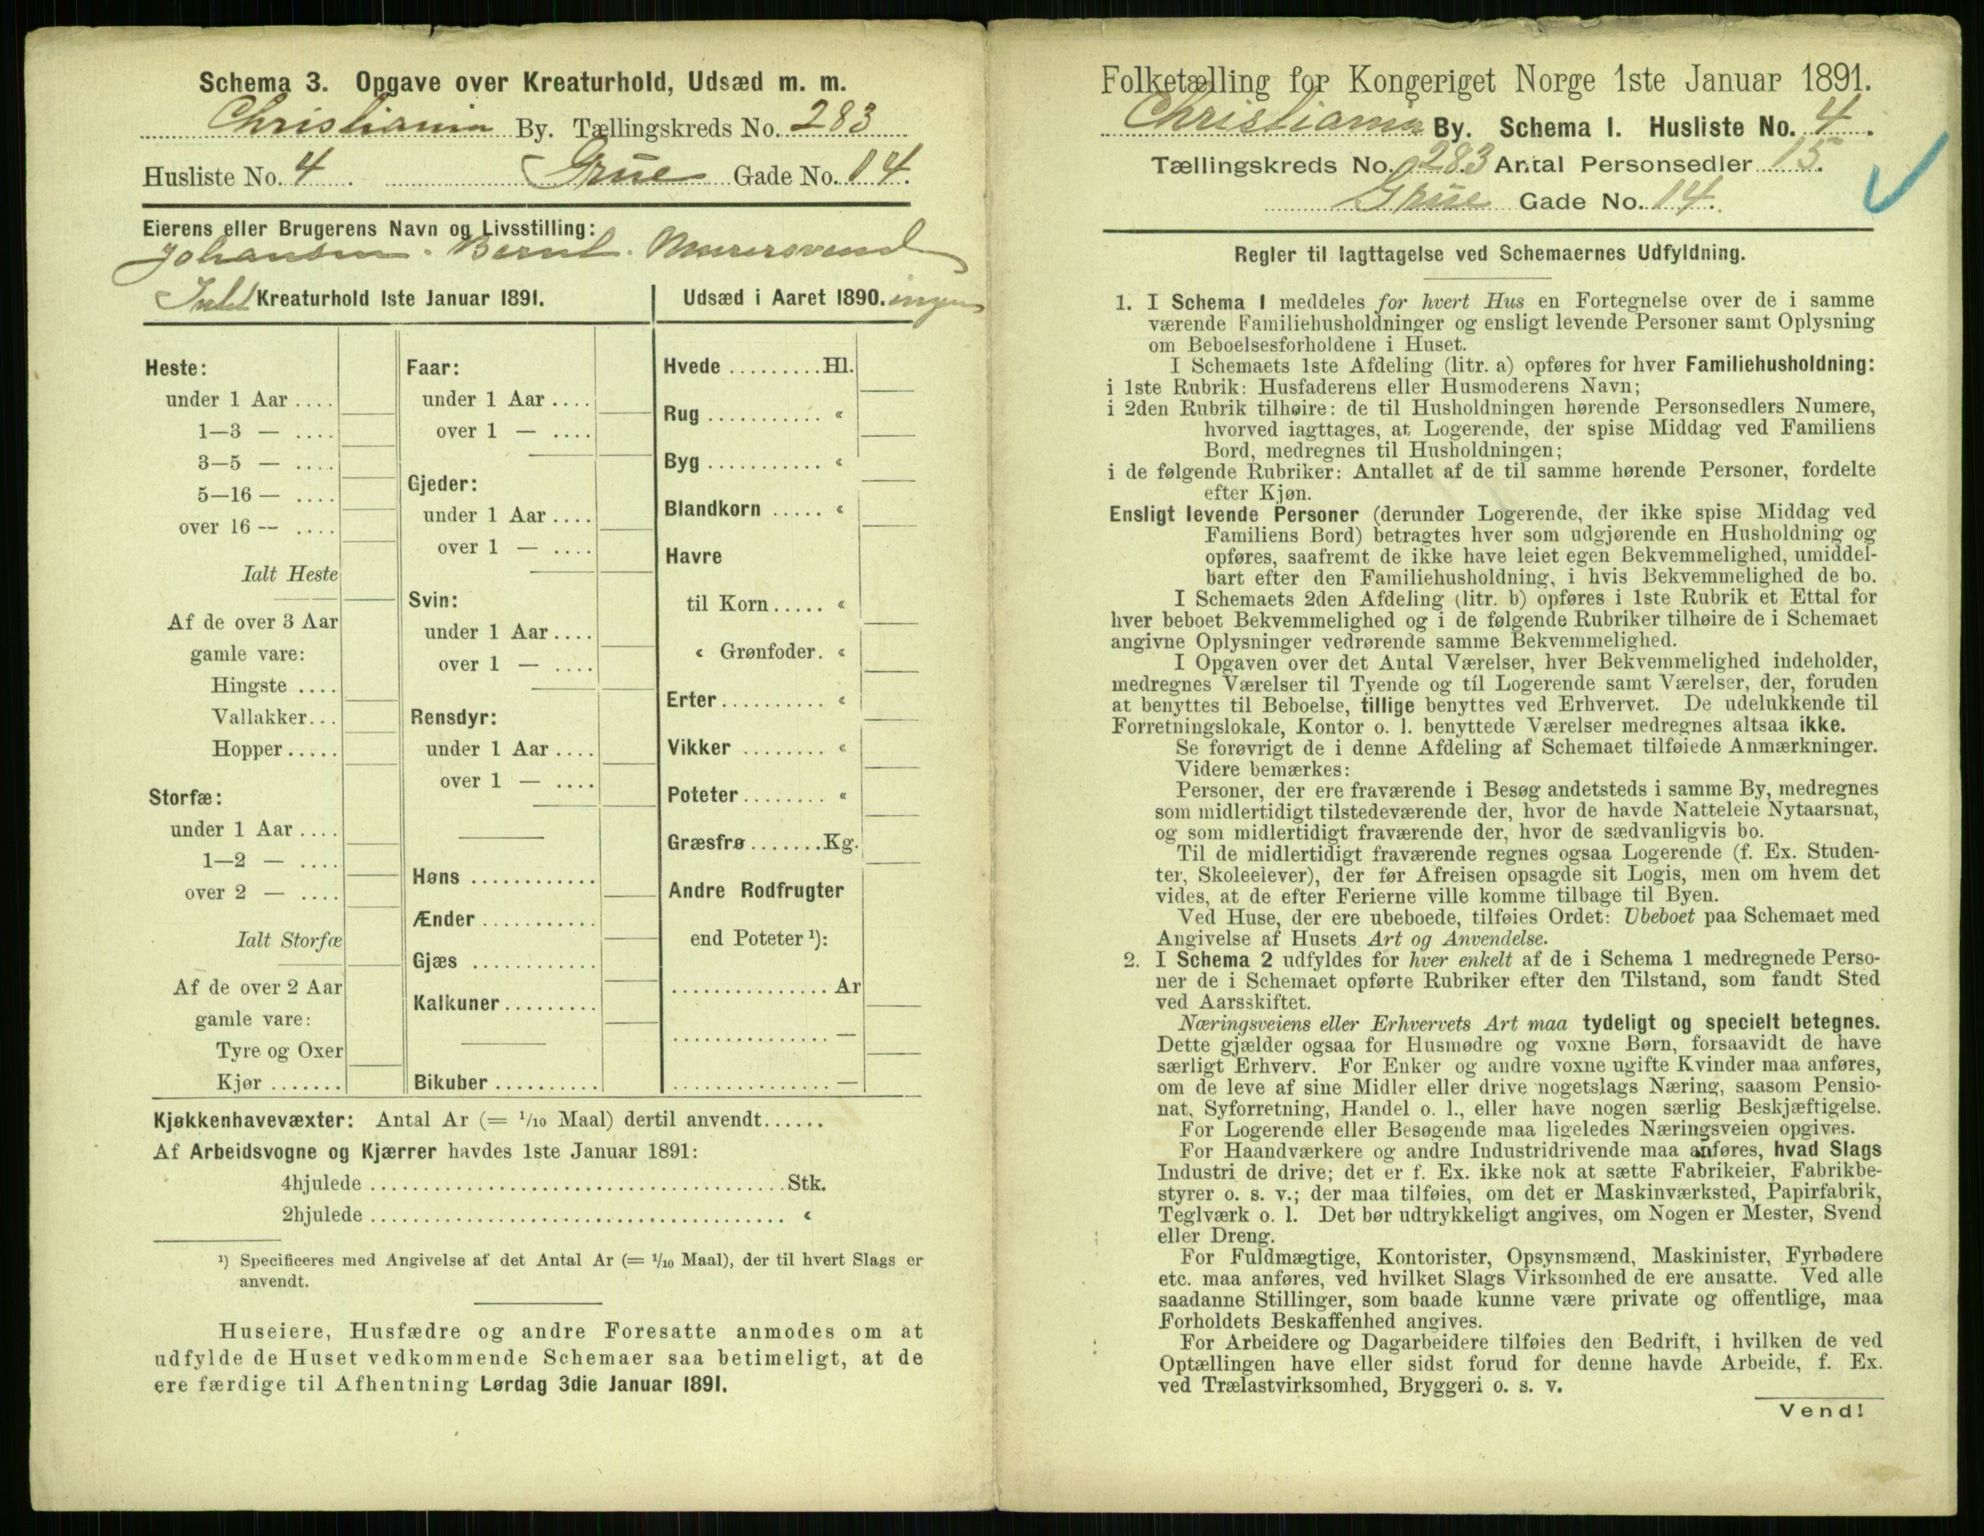 Schema 3. Opgave over Kreaturhold, Udsæd m. m.
Christiania By. Tællingskreds No. 283
Husliste No. 4 . Grüe Gade No. 14.
Eierens eller Brugerens Navn og Livsstilling:
Johansen. Bernt. Murersvend
Kreaturhold 1ste Januar 1891.
Udsæd i Aaret 1890. ingen
Heste:
under 1 Aar ....
1—3 — ....
3—5 — ....
5—16 — ....
over 16 — ....
Ialt Heste
Af de over 3 Aar
gamle vare:
Hingste ....
Vallakker...
Hopper .....
Storfæ:
under 1 Aar ....
1—2 — ....
over 2 — ....
Ialt Storfæ
Af de over 2 Aar
gamle vare:
Tyre og Oxer
Kjør .......
Faar:
under 1 Aar ....
over 1 — ....
Gjeder:
under 1 Aar ....
over 1 — ....
Svin:
under 1 Aar ....
over 1 — ....
Rensdyr:
under 1 Aar ....
over 1 — ....
Høns ............
Ænder ...........
Gjæs ............
Kalkuner .........
Bikuber ..........
Hvede .........Hl.
Rug ........... «
Byg ........... «
Blandkorn ..... «
Havre
til Korn ..... «
« Grønfoder. «
Erter .......... «
Vikker ........ «
Poteter ........ «
Græsfrø .......Kg.
Andre Rodfrugter
end Poteter ¹):
............... Ar
............... —
............... —
Kjøkkenhavevæxter: Antal Ar (= 1/10 Maal) dertil anvendt......
Af Arbeidsvogne og Kjærrer havdes 1ste Januar 1891:
4hjulede ........................................ Stk.
2hjulede ........................................ «
¹) Specificeres med Angivelse af det Antal Ar (= 1/10 Maal), der til hvert Slags er
anvendt.
Huseiere, Husfædre og andre Foresatte anmodes om at
udfylde de Huset vedkommende Schemaer saa betimeligt, at de
ere færdige til Afhentning Lørdag 3die Januar 1891.
Folketælling for Kongeriget Norge 1ste Januar 1891.
Christiania By. Schema I. Husliste No. 4 .
Tællingskreds No. 283 Antal Personsedler 15.
Grüe Gade No. 14.
Regler til Iagttagelse ved Schemaernes Udfyldning.
1. I Schema 1 meddeles for hvert Hus en Fortegnelse over de i samme
værende Familiehusholdninger og ensligt levende Personer samt Oplysning
om Beboelsesforholdene i Huset.
I Schemaets 1ste Afdeling (litr. a) opføres for hver Familiehusholdning:
i 1ste Rubrik: Husfaderens eller Husmoderens Navn;
i 2den Rubrik tilhøire: de til Husholdningen hørende Personsedlers Numere,
hvorved iagttages, at Logerende, der spise Middag ved Familiens
Bord, medregnes til Husholdningen;
i de følgende Rubriker: Antallet af de til samme hørende Personer, fordelte
efter Kjøn.
Ensligt levende Personer (derunder Logerende, der ikke spise Middag ved
Familiens Bord) betragtes hver som udgjørende en Husholdning og
opføres, saafremt de ikke have leiet egen Bekvemmelighed, umiddel-
bart efter den Familiehusholdning, i hvis Bekvemmelighed de bo.
I Schemaets 2den Afdeling (litr. b) opføres i 1ste Rubrik et Ettal for
hver beboet Bekvemmelighed og i de følgende Rubriker tilhøire de i Schemaet
angivne Oplysninger vedrørende samme Bekvemmelighed.
I Opgaven over det Antal Værelser, hver Bekvemmelighed indeholder,
medregnes Værelser til Tyende og til Logerende samt Værelser, der, foruden
at benyttes til Beboelse, tillige benyttes ved Erhvervet. De udelukkende til
Forretningslokale, Kontor o. l. benyttede Værelser medregnes altsaa ikke.
Se forøvrigt de i denne Afdeling af Schemaet tilføiede Anmærkninger.
Videre bemærkes:
Personer, der ere fraværende i Besøg andetsteds i samme By, medregnes
som midlertidigt tilstedeværende der, hvor de havde Natteleie Nytaarsnat,
og som midlertidigt fraværende der, hvor de sædvanligvis bo.
Til de midlertidigt fraværende regnes ogsaa Logerende (f. Ex. Studen-
ter, Skoleelever), der før Afreisen opsagde sit Logis, men om hvem det
vides, at de efter Ferierne ville komme tilbage til Byen.
Ved Huse, der ere ubeboede, tilføies Ordet: Ubeboet paa Schemaet med
Angivelse af Husets Art og Anvendelse.
2. I Schema 2 udfyldes for hver enkelt af de i Schema 1 medregnede Perso-
ner de i Schemaet opførte Rubriker efter den Tilstand, som fandt Sted
ved Aarsskiftet.
Næringsveiens eller Erhvervets Art maa tydeligt og specielt betegnes.
Dette gjælder ogsaa for Husmødre og voxne Børn, forsaavidt de have
særligt Erhverv. For Enker og andre voxne ugifte Kvinder maa anføres,
om de leve af sine Midler eller drive nogetslags Næring, saasom Pensio-
nat, Syforretning, Handel o. l., eller have nogen særlig Beskjæftigelse.
For Logerende eller Besøgende maa ligeledes Næringsveien opgives.
For Haandværkere og andre Industridrivende maa anføres, hvad Slags
Industri de drive; det er f. Ex. ikke nok at sætte Fabrikeier, Fabrikbe-
styrer o. s. v.; der maa tilføies, om det er Maskinværksted, Papirfabrik,
Teglværk o. l. Det bør udtrykkeligt angives, om Nogen er Mester, Svend
eller Dreng.
For Fuldmægtige, Kontorister, Opsynsmænd, Maskinister, Fyrbødere
etc. maa anføres, ved hvilket Slags Virksomhed de ere ansatte. Ved alle
saadanne Stillinger, som baade kunne være private og offentlige, maa
Forholdets Beskaffenhed angives.
For Arbeidere og Dagarbeidere tilføies den Bedrift, i hvilken de ved
Optællingen have eller sidst forud for denne havde Arbeide, f. Ex.
ved Trælastvirksomhed, Bryggeri o. s. v.
Vend!